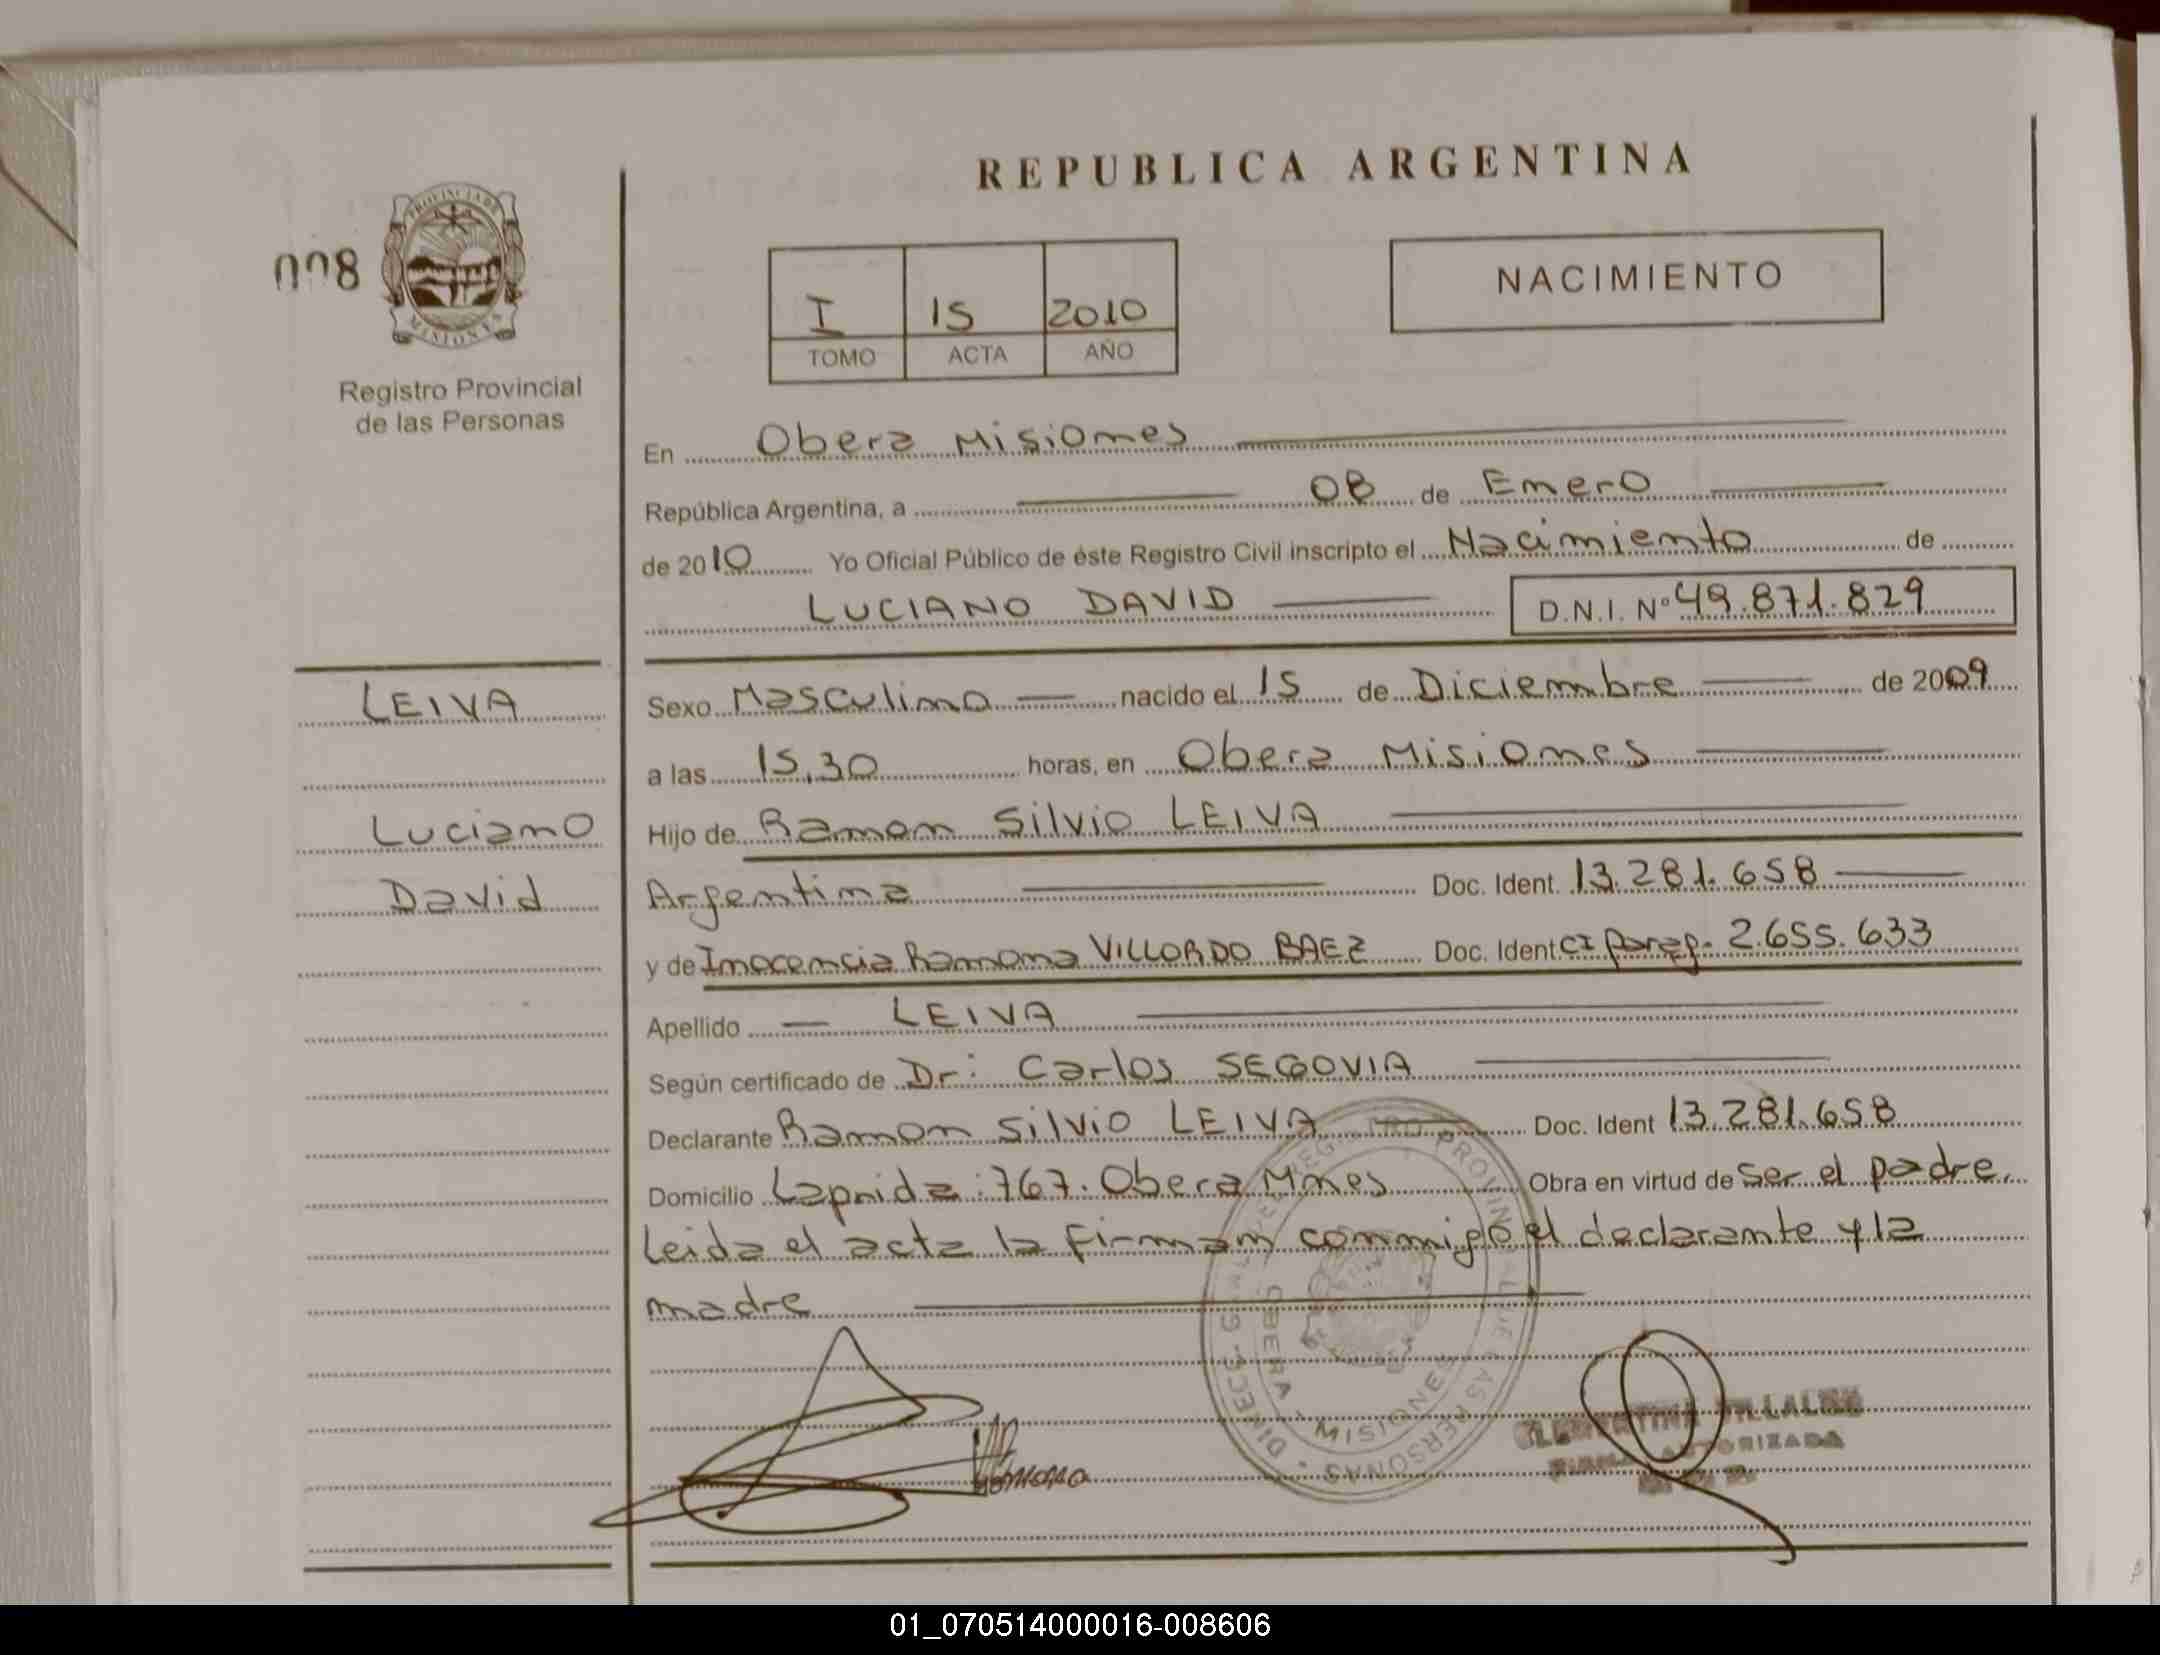 REPUBLICA ARGENTINA
008
PROVINCIA DE
MISIONES
Registro Provincial
de las Personas
I 15 2010
TOMO ACTA AÑO
NACIMIENTO
En Obera Misiones
República Argentina, a 08 de Enero
de 2010 Yo Oficial Público de éste Registro Civil inscripto el Nacimiento de
LUCIANO DAVID D.N.I. Nº 49.871.829
LEIVA
Luciano
David
Sexo Masculino nacido el 15 de Diciembre de 2009
a las 15,30 horas, en Obera Misiones
Hijo de Ramon Silvio LEIVA
Argentina Doc. Ident. 13.281.658
y de Inocencia Ramona VILLORDO BAEZ Doc. Ident CI parag. 2.655.633
Apellido LEIVA
Según certificado de Dr: Carlos SEGOVIA
Declarante Ramon Silvio LEIVA Doc. Ident 13.281.658
Domicilio Laprida: 767. Obera Mnes Obra en virtud de Ser el padre.
Leida el acta la firman conmigo el declarante y la
madre
OBERA MISIONES
AUTORIZADA
01_070514000016-008606